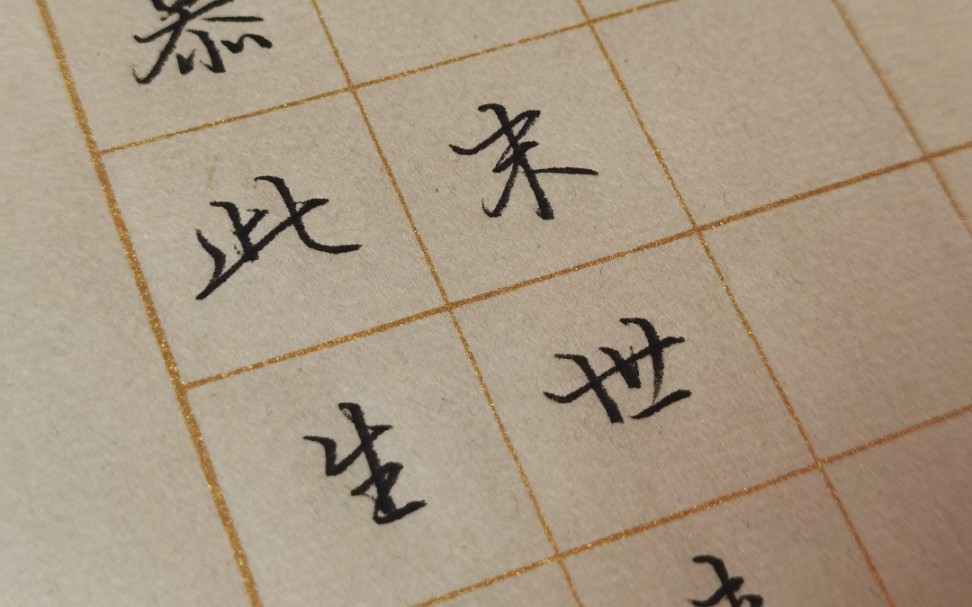 末世
慕此生